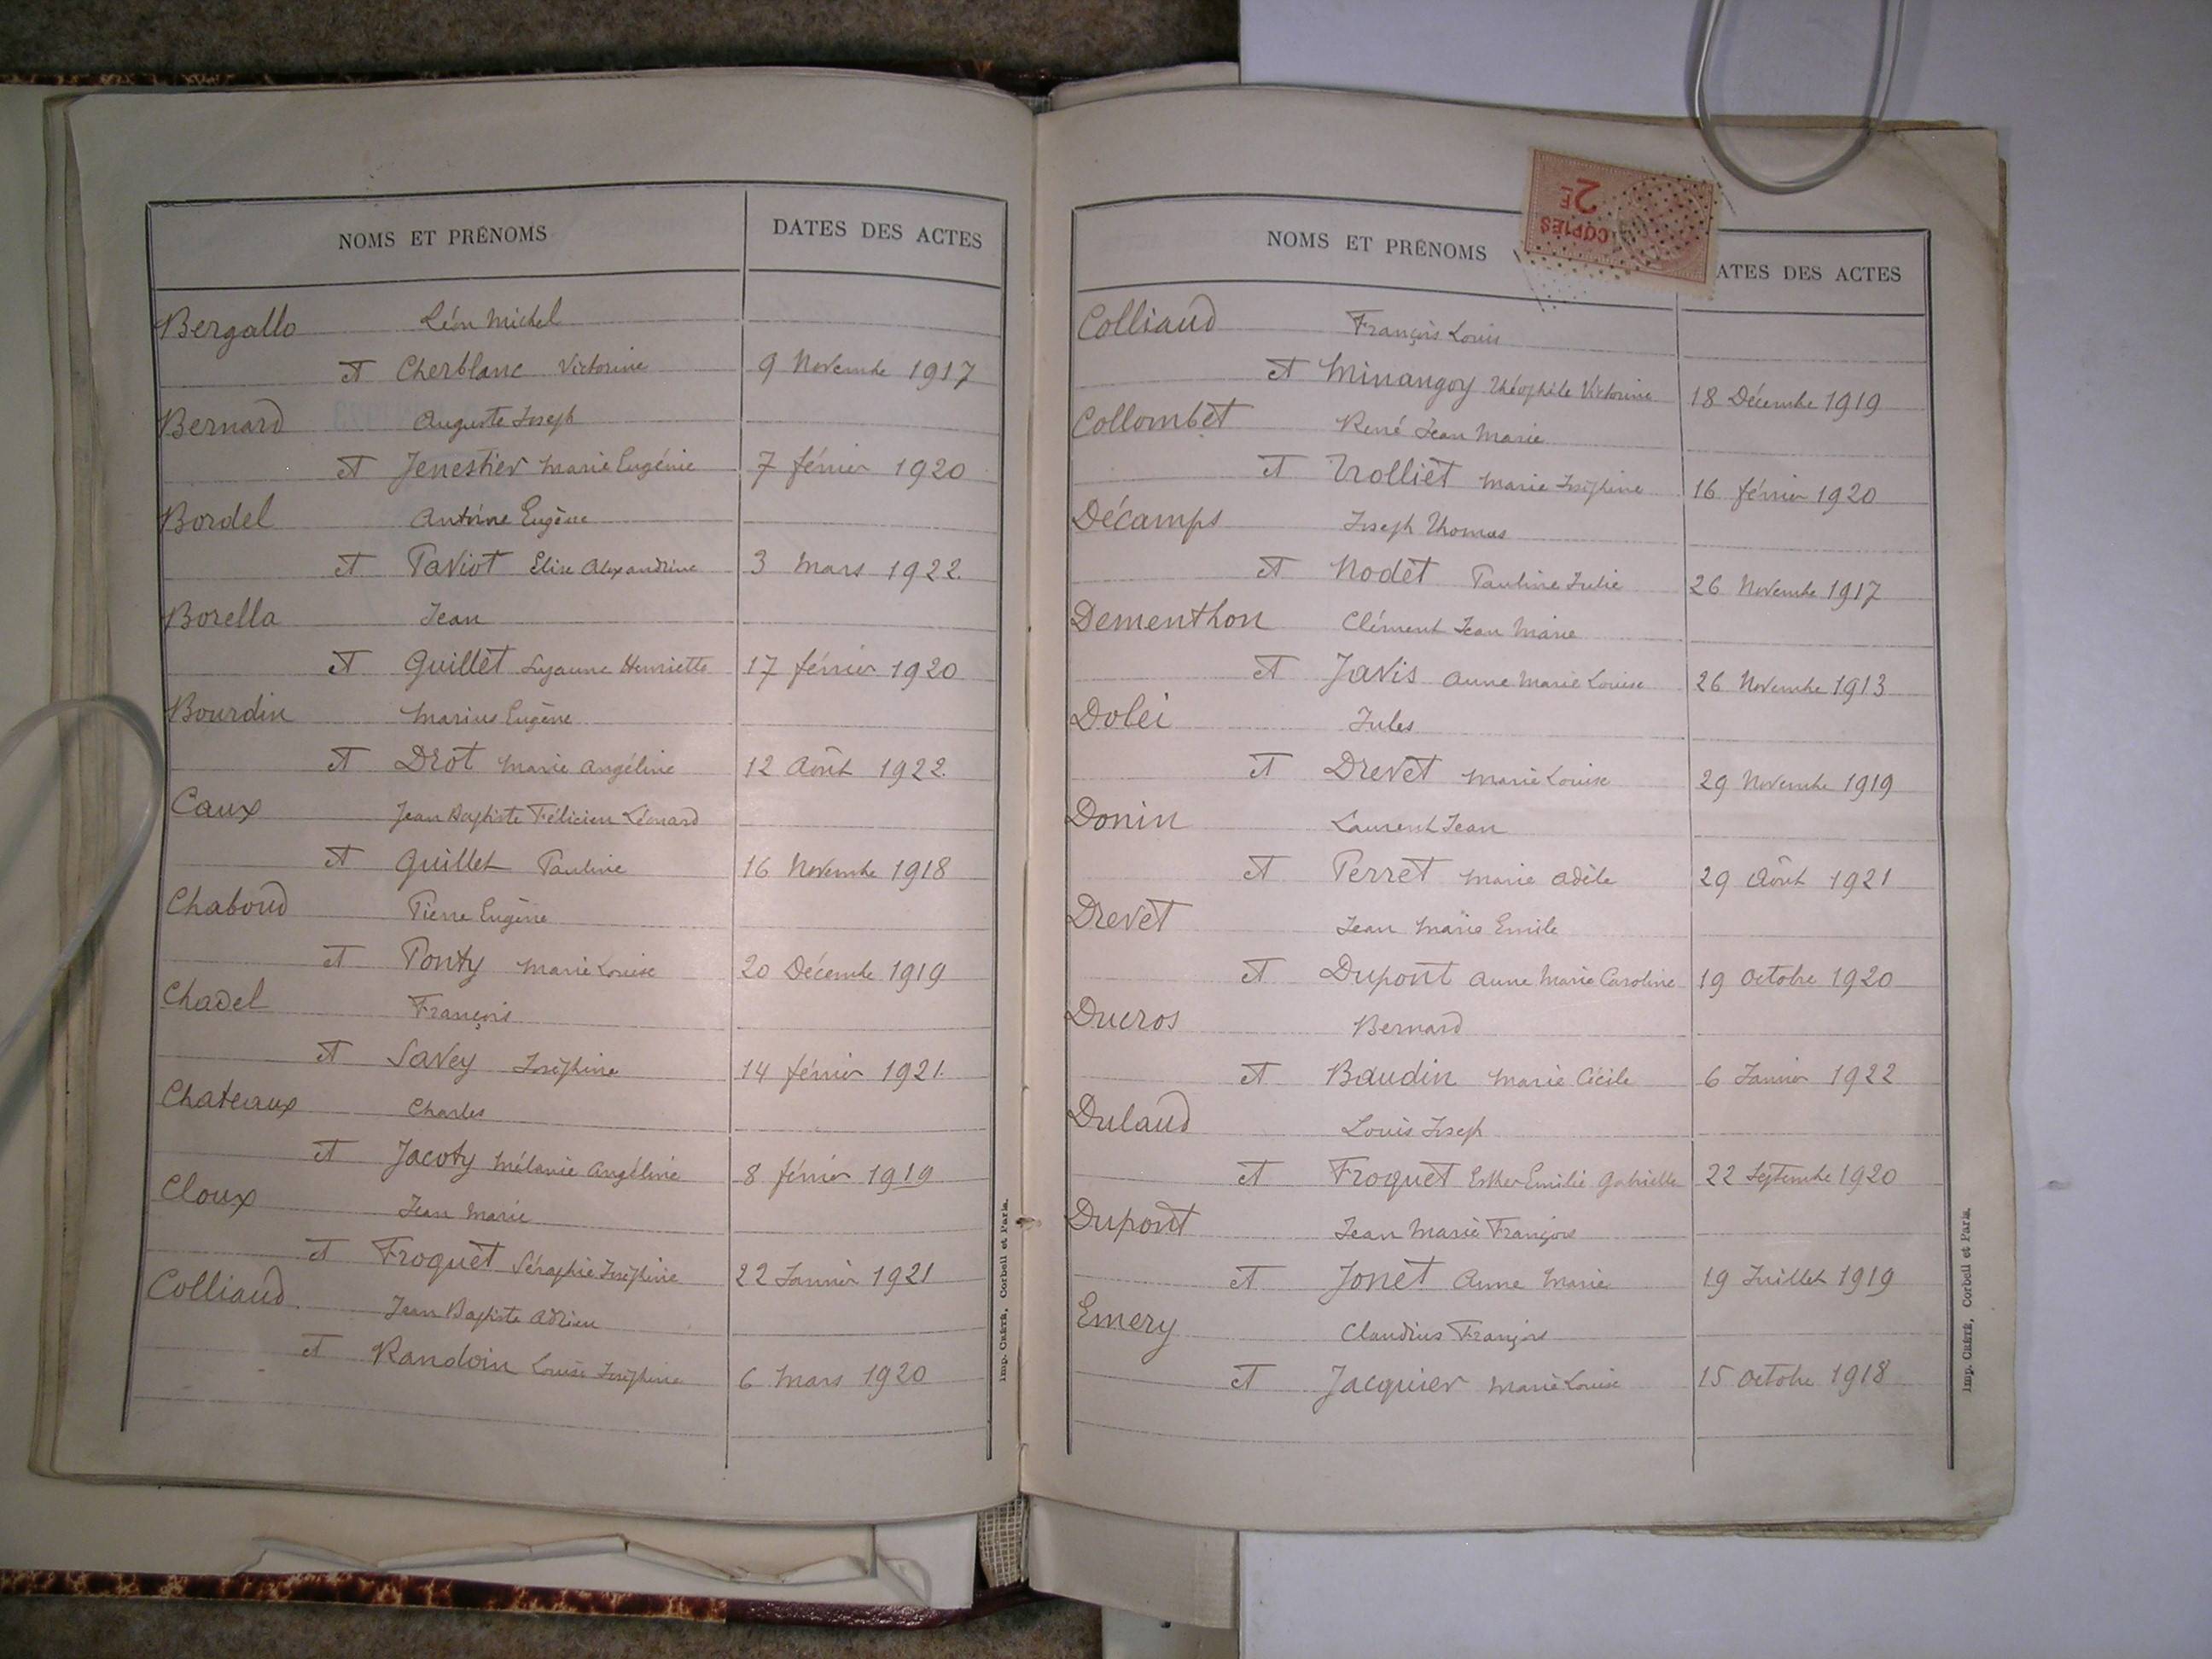 NOMS ET PRÉNOMS DATES DES ACTES
Bergallo Léon Michel
et Cherblanc Victorine 9 Novembre 1917
Bernard Auguste Joseph
et Jenestier Marie Eugénie 7 février 1920
Bordel Antoine Eugène
et Paviot Elise Alexandrine 3 Mars 1922.
Borella Jean
et Guillet Suzanne Henriette 17 février 1920
Bourdin Marius Eugène
et Drot Marie Angéline 12 Août 1922.
Caux Jean Baptiste Félicien Léonard
et Guillet Pauline 16 Novembre 1918
Chaboud Pierre Eugène
et Ponty Marie Louise 20 Décembre 1919
Chadel François
et Savey Joséphine 14 février 1921.
Chateaux Charles
et Jacoty Mélanie Angéline 8 février 1919
Cloux Jean Marie
et Froquet Séraphie Joséphine 22 Janvier 1921
Colliaud Jean Baptiste Adrien
et Randoin Louise Joséphine 6 Mars 1920
Imp. CRÉTÉ, Corbeil et Paris.
NOMS ET PRÉNOMS ATES DES ACTES
COPIES
2F
Colliaud François Louis
et Minangoy Théophile Victorine 18 Décembre 1919
Collombet René Jean Marie
et Trolliet Marie Joséphine 16 février 1920
Décamps Joseph Thomas
et Nodet Pauline Julie 26 Novembre 1917
Dementhon Clément Jean Marie
et Javis Anne Marie Louise 26 Novembre 1913
Dolei Jules
et Drevet Marie Louise 29 Novembre 1919
Donin Laurent Jean
et Perret Marie Adèle 29 Août 1921
Drevet Jean Marie Emile
et Dupont Anne Marie Caroline 19 Octobre 1920
Ducros Bernard
et Baudin Marie Cécile 6 Janvier 1922
Dulaud Louis Joseph
et Froquet Esther Emilie Gabrielle 22 Septembre 1920
Dupont Jean Marie François
et Jonet Anne Marie 19 Juillet 1919
Emery Claudius François
et Jacquier Marie Louise 15 Octobre 1918
Imp. CRÉTÉ, Corbeil et Paris.